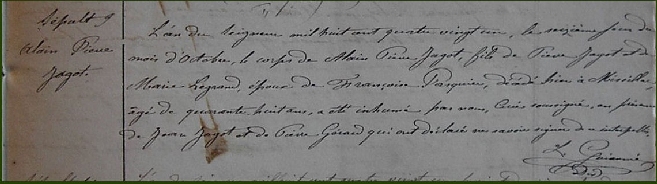 Sépult. 9
Alain Pierre
Jagot.
L'an du Seigneur mil huit cent quatre vingt un, le seizième jour du
mois d'Octobre, le corps de Alain Pierre Jagot, fils de Pierre Jagot et de
Marie Legrand époux de Françoise Pasquier, décédé hier à
âgé de quarante huit ans, a été inhumé par nous, soussigné, en présence
de Jean Jagot et de Pierre Gérard qui ont déclaré ne savoir signer de ce interpellés